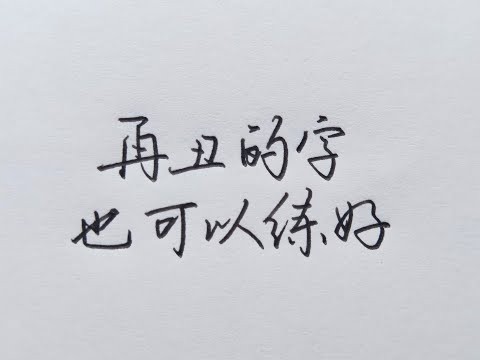 再丑的字
也可以练好